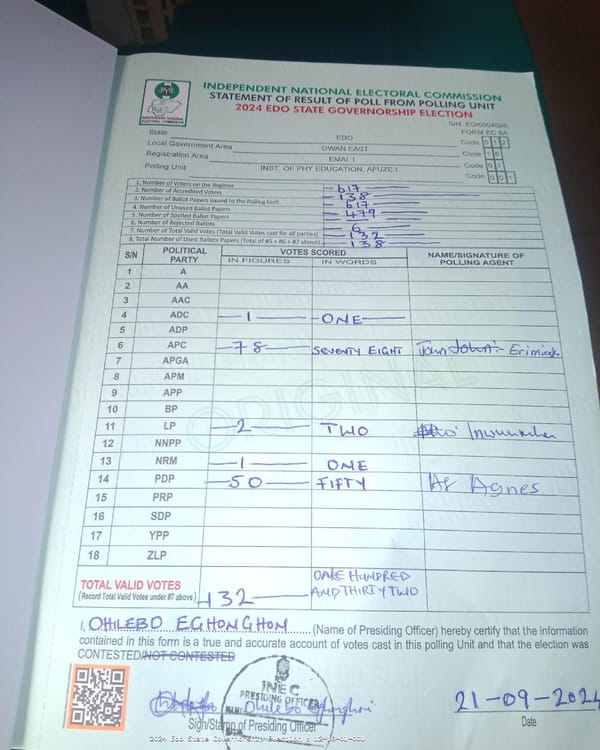 INDEPENDENT NATIONAL ELECTORAL COMMISSION
STATEMENT OF RESULT OF POLL FROM POLLING UNIT
2024 EDO STATE GOVERNORSHIP ELECTION
FORM EC 8A
State EDO Code 0 1 2
Local Government Area OWAN EAST Code
Registration Area EMAI I Code 0 1
Polling Unit INST. OF PHY EDUCATION, AFUZE I Code 0 0 1
1. Number of Voters on the Register 617
2. Number of Accredited Voters 138
3. Number of Ballot Papers Issued to the Polling Unit 617
4. Number of Unused Ballot Papers 479
5. Number of Spoiled Ballot Papers
6. Number of Rejected Ballots 6
7. Number of Total Valid Votes (Total Valid Votes cast for all parties) 132
8. Total Number of Used Ballot Papers (Total of #5 + #6 + #7 above) 138
S/N POLITICAL PARTY VOTES SCORED NAME/SIGNATURE OF POLLING AGENT
IN FIGURES IN WORDS
1 A
2 AA
3 AAC
4 ADC 1 ONE
5 ADP
6 APC 78 SEVENTY EIGHT John John
7 APGA
8 APM
9 APP
10 BP
11 LP 2 TWO
12 NNPP
13 NRM 1 ONE
14 PDP 50 FIFTY Agnes
15 PRP
16 SDP
17 YPP
18 ZLP
ORIGINAL
TOTAL VALID VOTES
(Record Total Valid Votes under #7 above) 132 ONE HUNDRED
AND THIRTY TWO
I, OHILEBO EGHONGHON (Name of Presiding Officer) hereby certify that the information
contained in this form is a true and accurate account of votes cast in this polling Unit and that the election was
CONTESTED/NOT CONTESTED
INEC
PRESIDING OFFICER
21-09-2024
Sign/Stamp of Presiding Officer Date